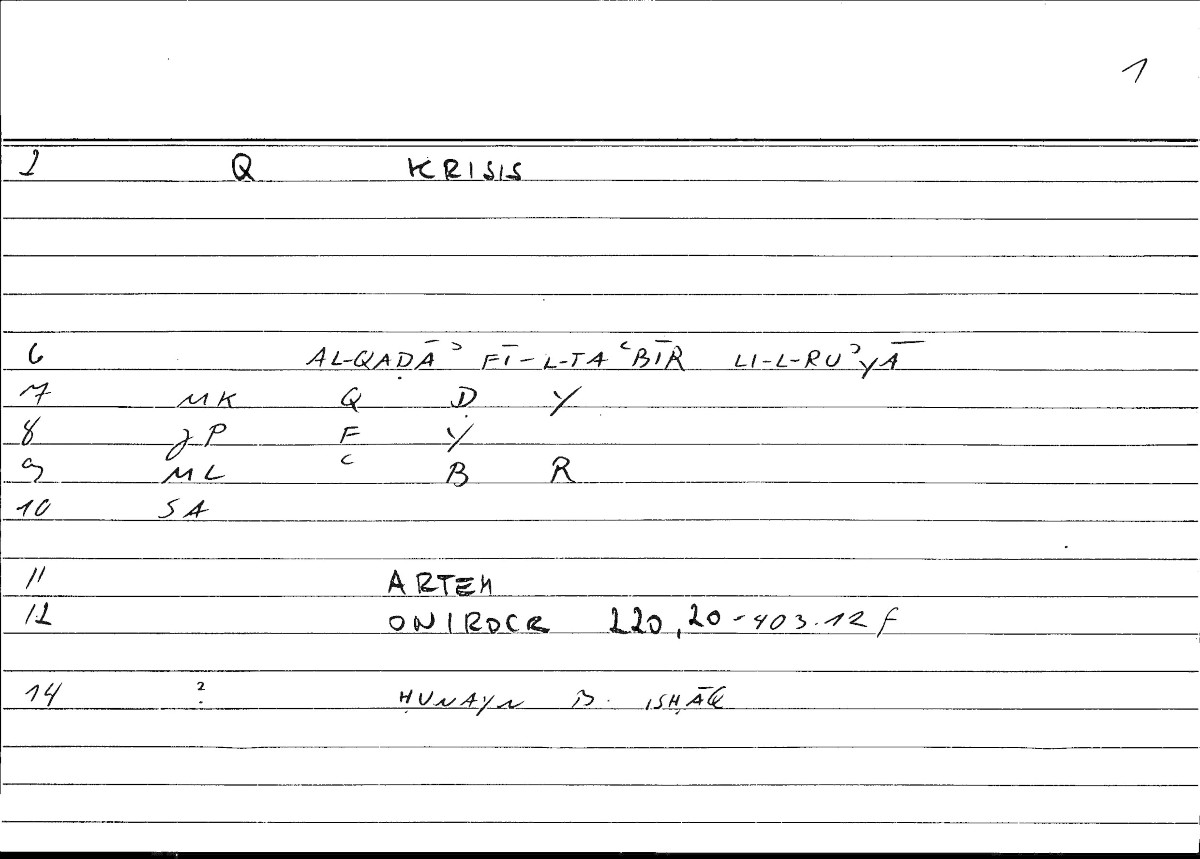 1
2 Q KRISIS
6 AL-QAḌĀʾ FĪ-L-TAʿBĪR LI-L-RUʾYĀ
7 MK Q Ḍ Y
8 JP F Y
9 ML ʿ B R
10 SA
11 ARTEM
12 ONIROCR 220,20-403.12 f
14 ? ḤUNAYN B. ISḤĀQ